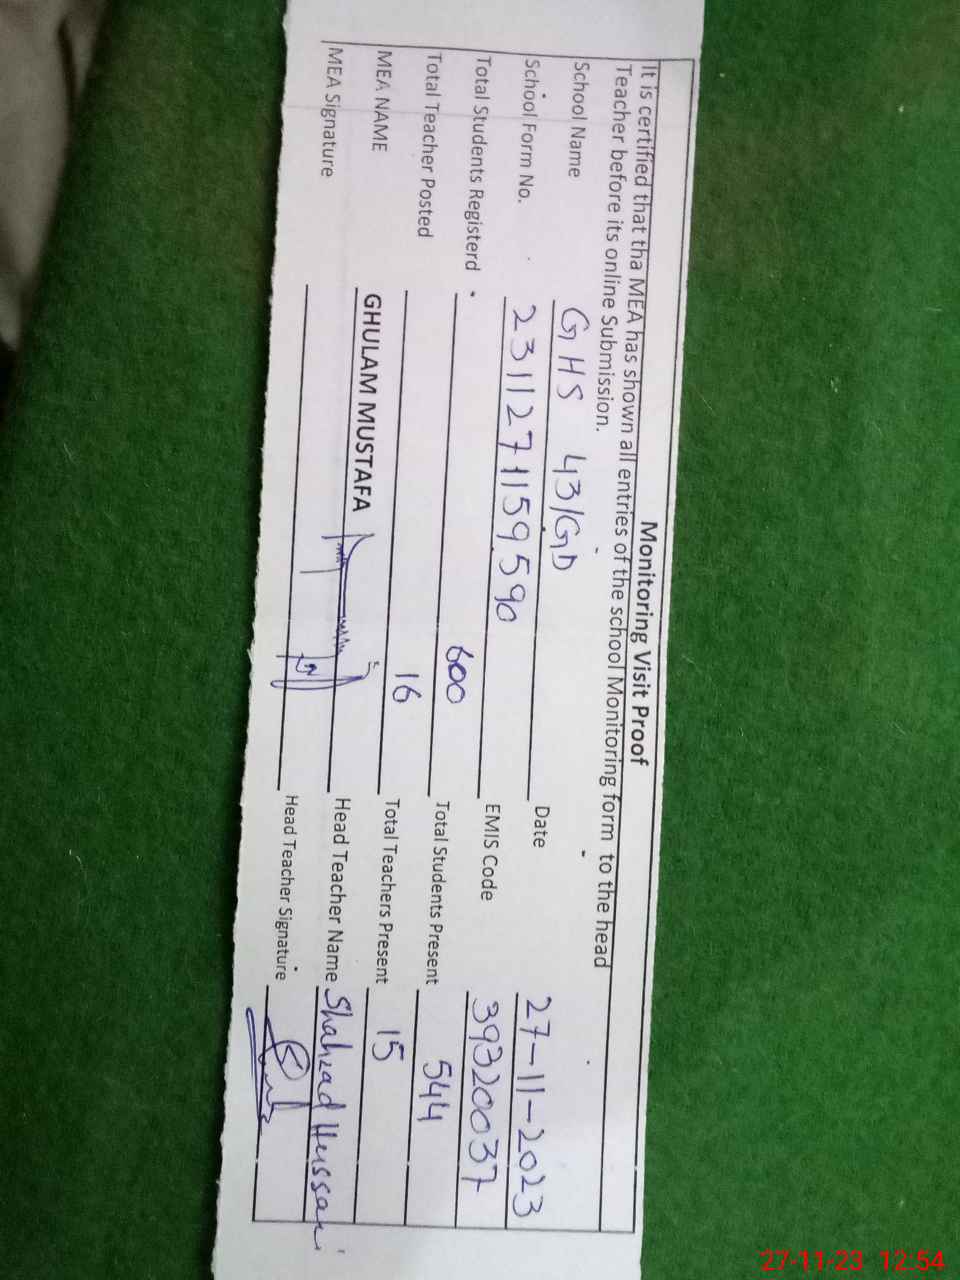 Monitoring Visit Proof
It is certified that tha MEA has shown all entries of the school Monitoring form to the head
Teacher before its online Submission.
School Name GHS 43/GD Date 27-11-2023
School Form No. 2311271159590 EMIS Code 39320037
Total Students Registerd 600 Total Students Present 544
Total Teacher Posted 16 Total Teachers Present 15
MEA NAME GHULAM MUSTAFA Head Teacher Name Shahzad Hussain
MEA Signature Head Teacher Signature
27-11-23 12:54